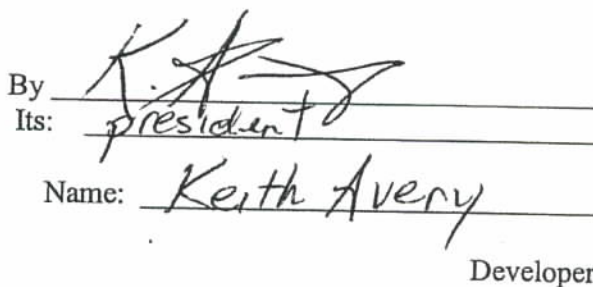 By K. Avery
Its: president
Name: Keith Avery
Developer